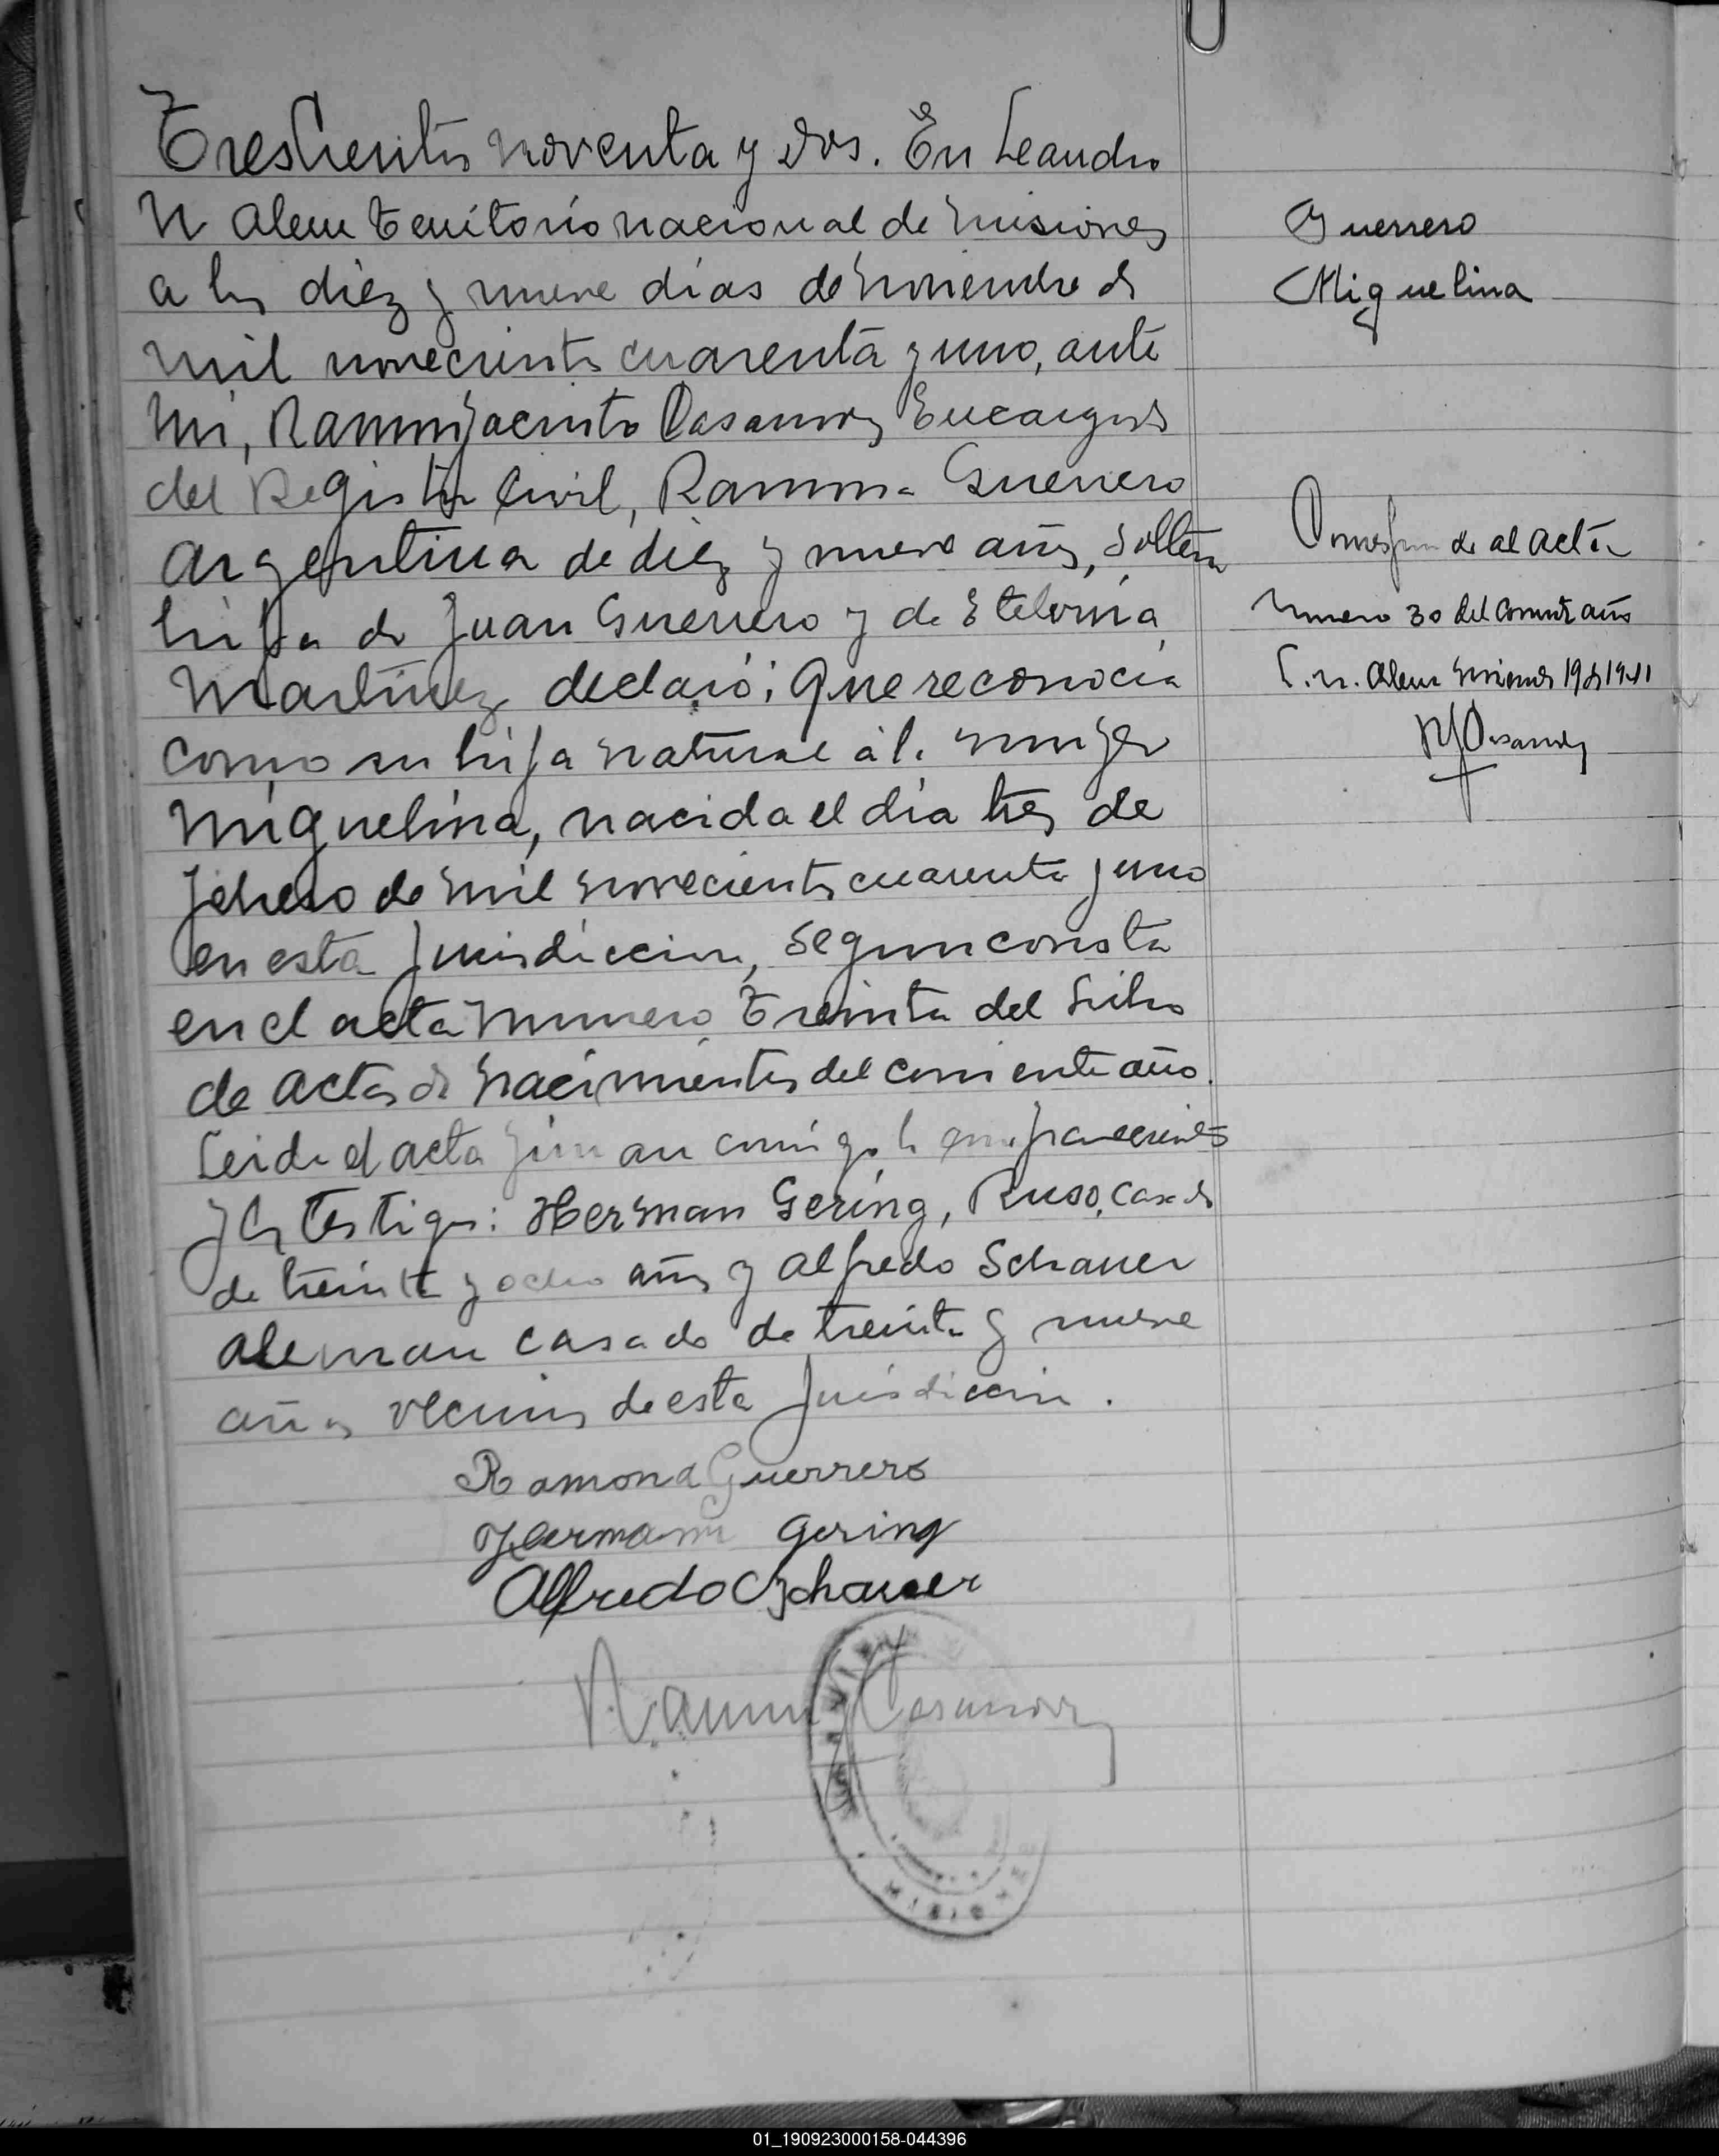 Trescientos noventa y dos. En Leandro
N Alem Territorio nacional de Misiones
a los diez y nueve días de Noviembre de
mil novecientos cuarenta y uno, ante
mi, Ramon Jacinto Casanova Encargado
del Registro Civil, Ramona Guerrero
argentina de diez y nueve años, soltera
hija de Juan Guerrero y de Etelvina
Martinez declaró: Que reconocia
como su hija natural á la mujer
Miguelina, nacida el día tres de
febrero de mil novecientos cuarenta y uno
en esta Jurisdiccion, segun consta
en el acta Numero Treinta del Libro
de actas de Nacimientos del corriente año.
Leida el acta firman conmigo la compareciente
y los testigos: Herman Gering, Ruso, casado
de treinta y ocho años y Alfredo Schauer
aleman casado de treinta y nueve
años vecinos de esta Jurisdiccion.
Ramona Guerrero
Hermann Gering
Alfredo Schauer
Ramon J Casanova
Guerrero
Miguelina
Corresponde al acta
Numero 30 del corriente año
L. N. Alem Misiones
RJCasanova
MISIONES
01_190923000158-044396